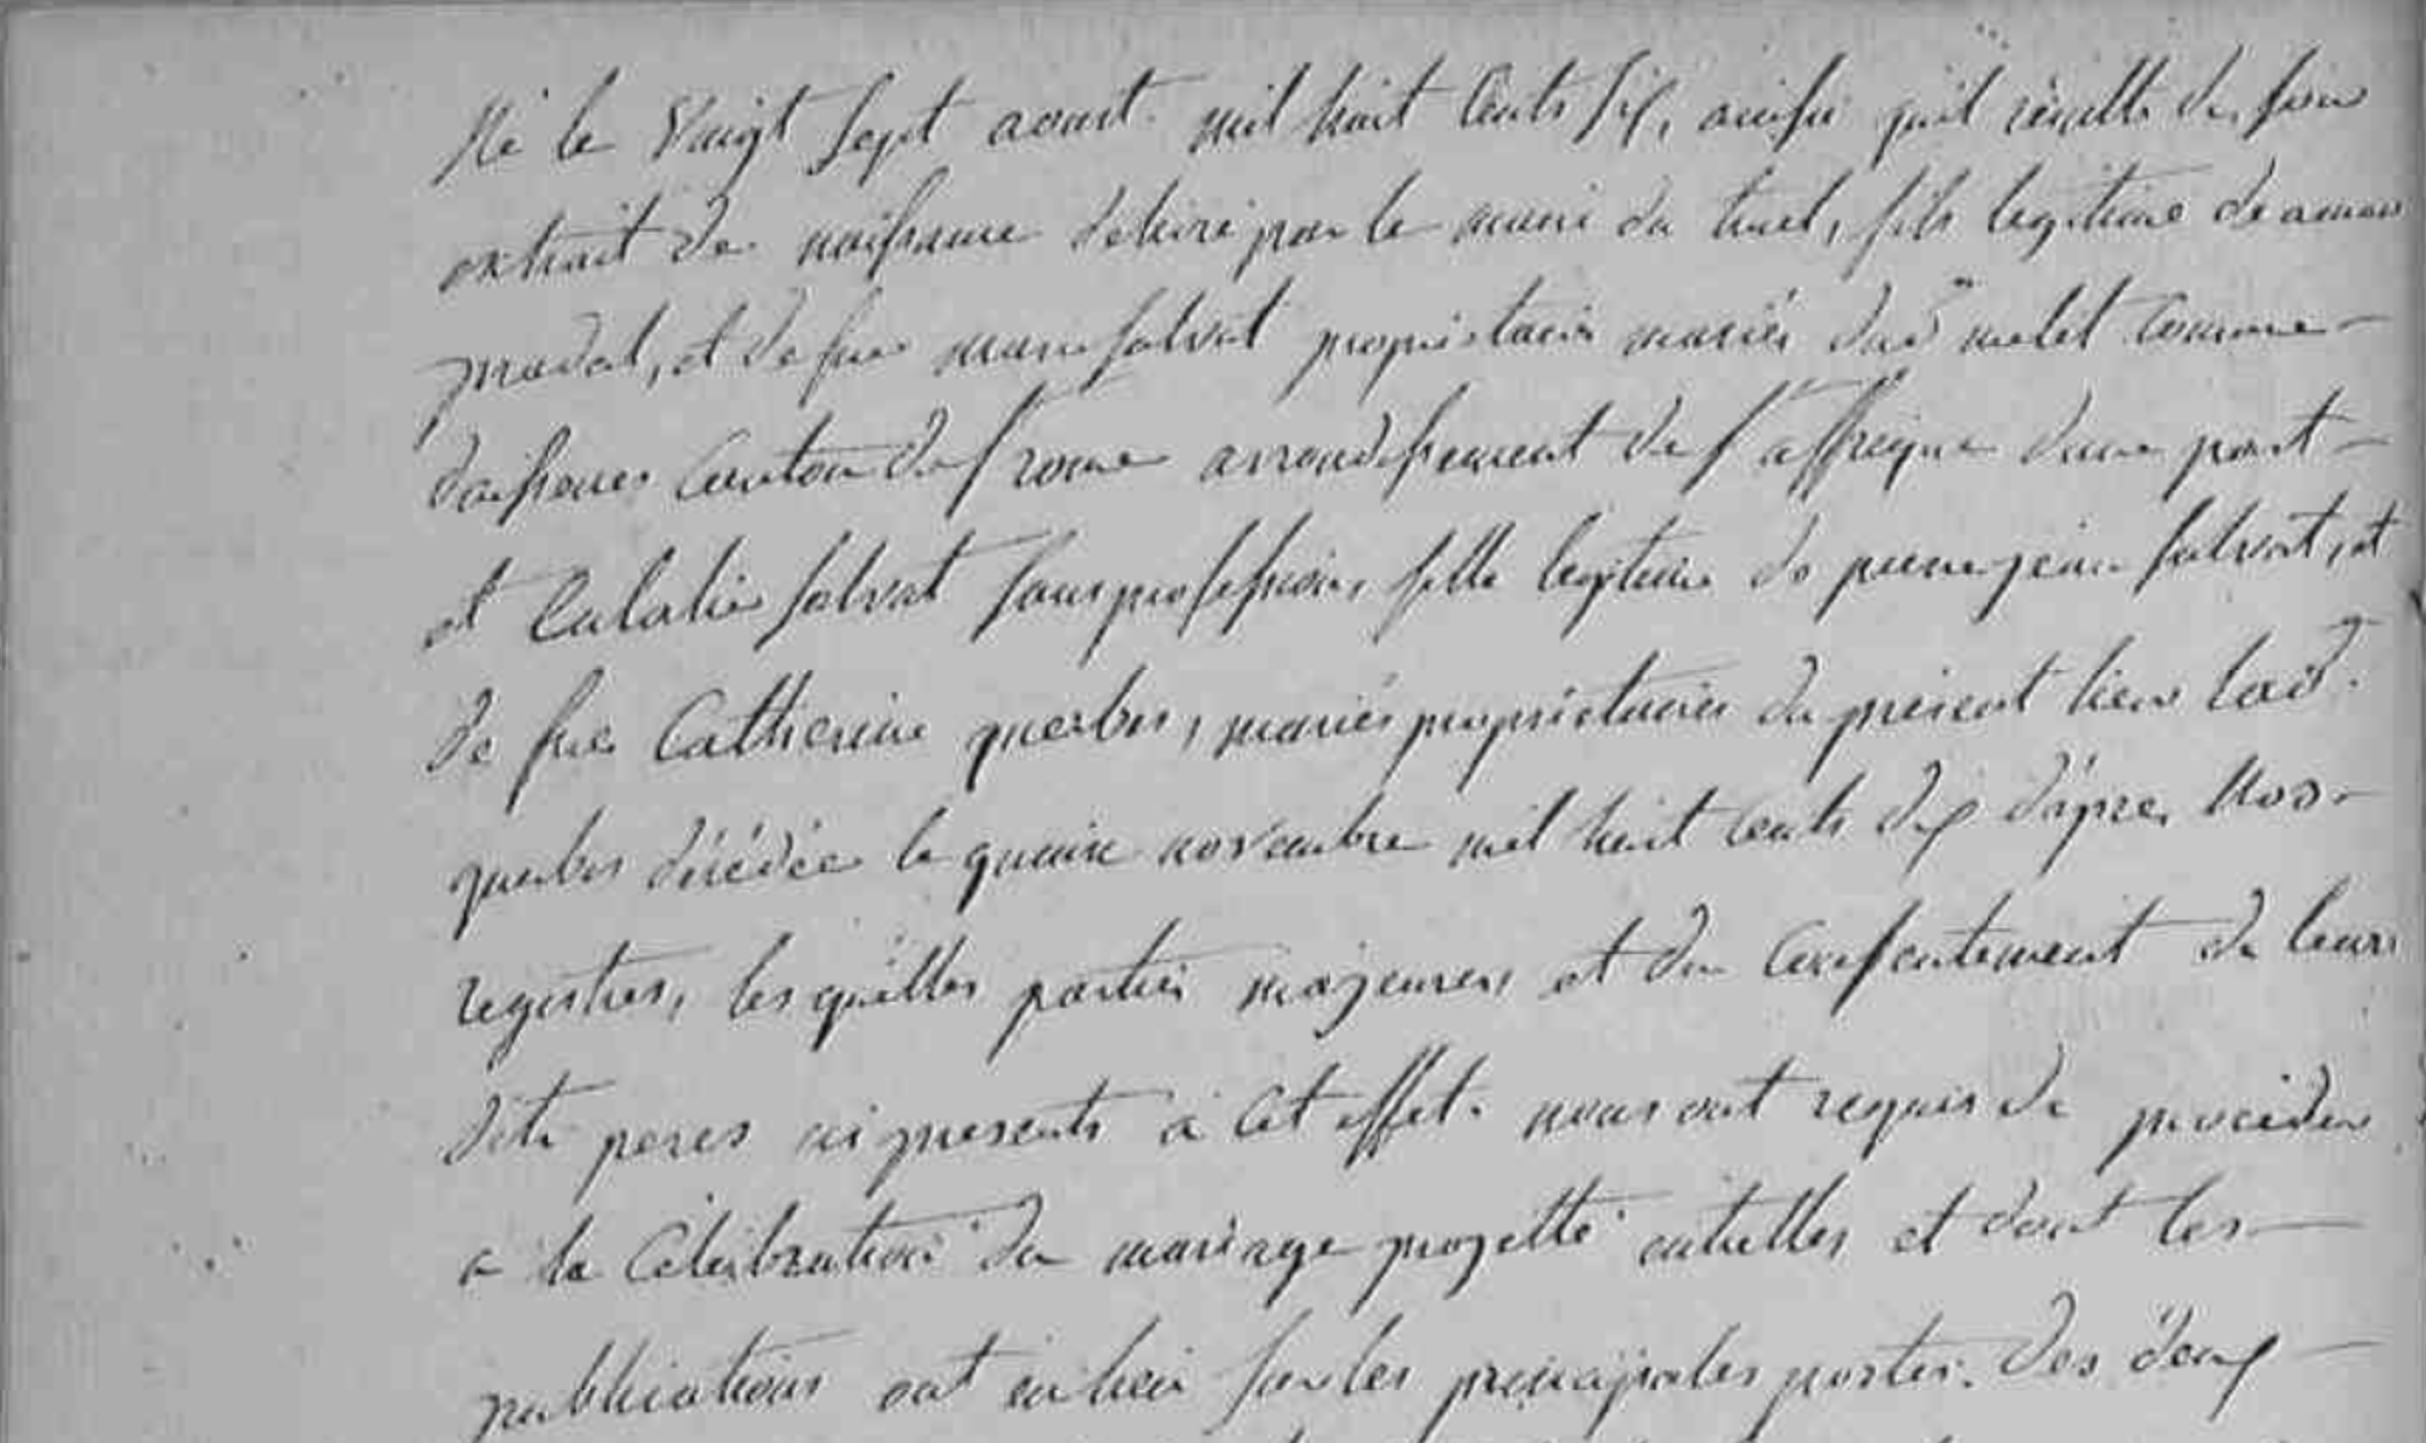 Né le Vingt Sept aoust mil huit Cents Six, ainsi quil résulte de son
extrait de naissance délivré par le maire du truel, fils legitime de amans
pradal, et de feue marie salvat propriétaires mariés du d. melet Comune
daissenes Canton de St rome arrondissement de St affrique dune part
et Eulalie salvat sans profession, fille legitime de pierre jean salvat, et
de feue Catherine querbes, mariés propriétaires du présent lieu lad.
querbes décédée le quinze novembre mil huit Cents dix d'apres Nos
registres, les quelles parties majeures, et du Consentement de leurs
dits peres ici presents à Cet effet. nous ont requis de procéder
a la Célébration du mariage projetté entrelles et dont les
publications ont eu lieu sur les principales portes des deux